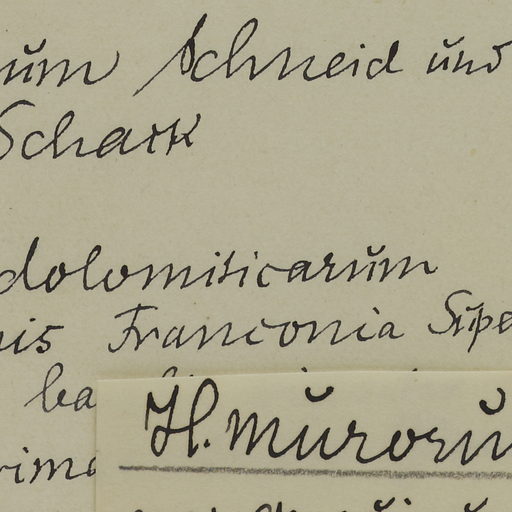 um Schneid und
Schack
dolomiticarum
is Franconia Supe
ba
rima
H. muroru